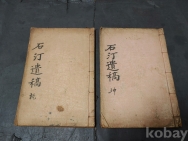 石汀遺稿
乾
石汀遺稿
坤
kobay